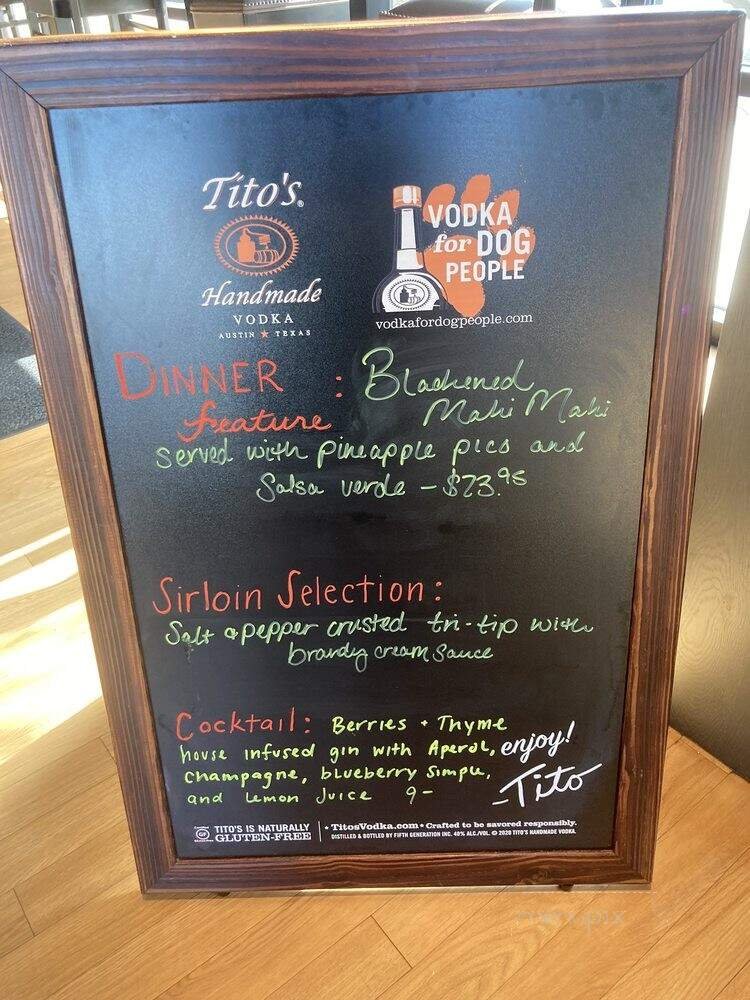 Tito's®
Handmade
VODKA
AUSTIN ★ TEXAS
VODKA
for DOG
PEOPLE
vodkafordogpeople.com
DINNER : Blackened
feature Mahi Mahi
served with pineapple pico and
Salsa verde - $23.95
Sirloin Selection:
Salt & pepper crusted tri-tip with
brandy cream sauce
Cocktail: Berries + Thyme
house infused gin with Aperol,
champagne, blueberry simple,
and Lemon Juice 9-
enjoy!
-Tito
GF
TITO'S IS NATURALLY
GLUTEN-FREE
• TitosVodka.com • Crafted to be savored responsibly.
DISTILLED & BOTTLED BY FIFTH GENERATION INC. 40% ALC./VOL. © 2020 TITO'S HANDMADE VODKA.